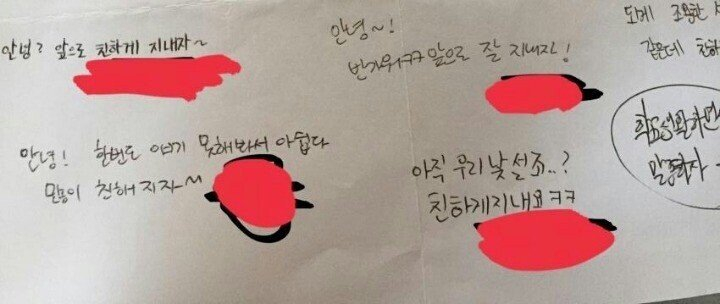 안녕? 앞으로 친하게 지내자~
안녕~!
반가워ㅋㅋ 앞으로 잘 지내자!
도메 조용한
같은데 친하
안녕! 한번도 얘기 못해봐서 아쉽다
친해지자~
아직 우리 낯설죠..?
친하게지내요ㅋㅋ
학교생활하면
말 하자